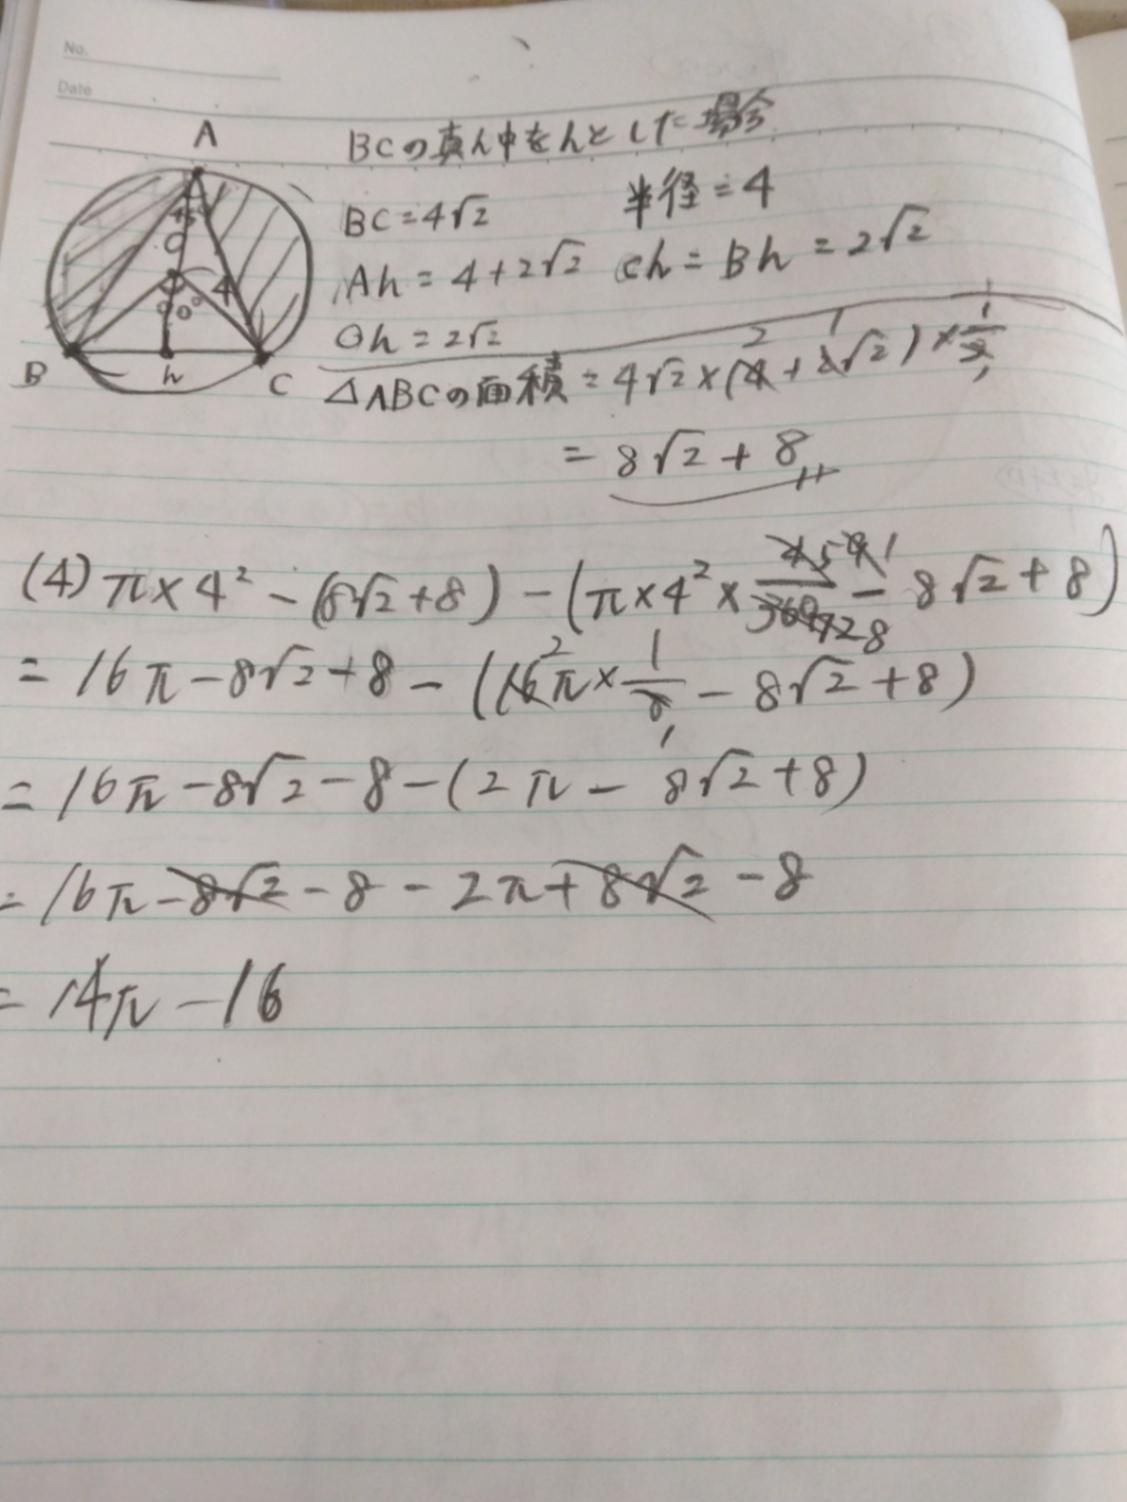 No.
Date
A
45°
O
4
B
h
C
BCの真ん中をhとした場合
BC=4√2 半径=4
Ah=4+2√2 Ch=Bh=2√2
Oh=2√2
△ABCの面積=4√2×(4+2√2)×1/2
=8√2+8
(4) π×4²-(8√2+8)-(π×4²×45/360-8√2+8)
=16π-8√2+8-(16π×1/8-8√2+8)
=16π-8√2-8-(2π-8√2+8)
=16π-8√2-8-2π+8√2-8
=14π-16